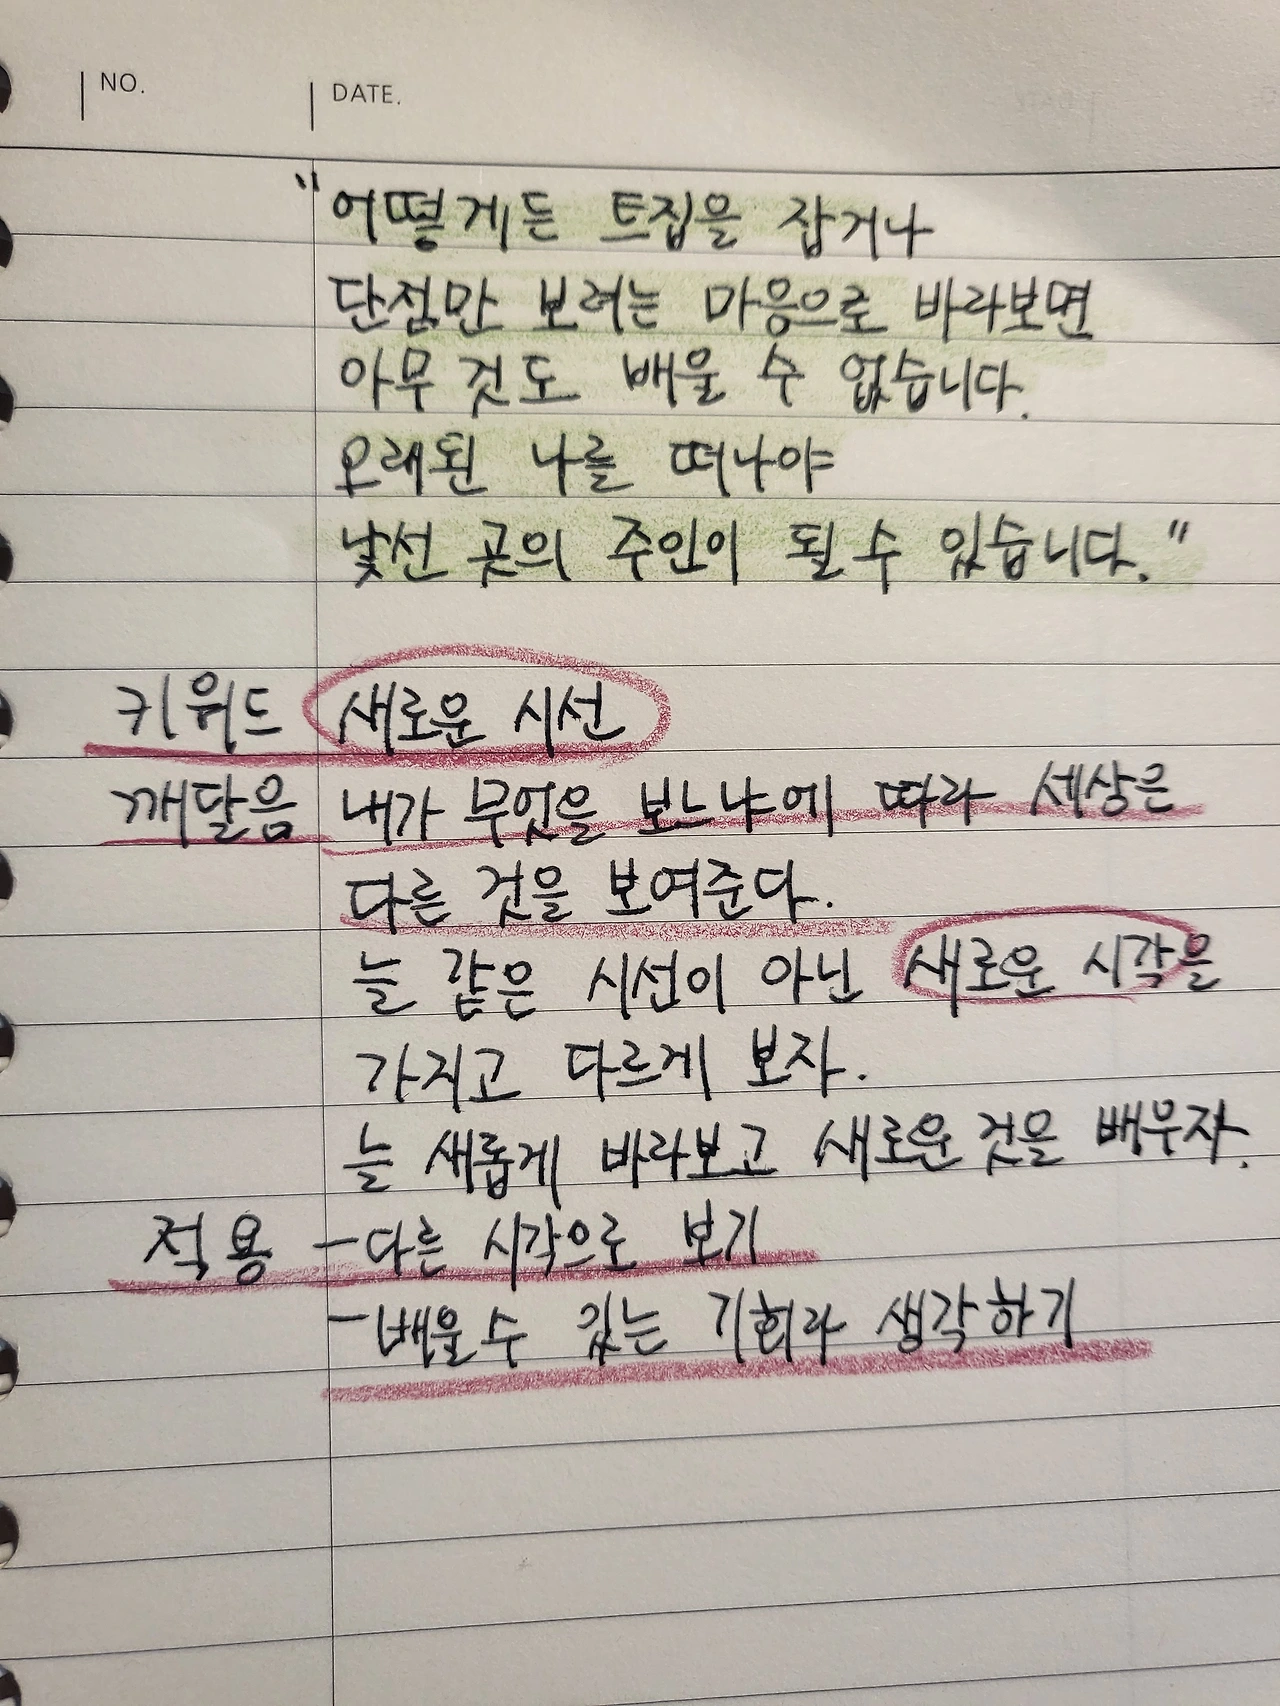 NO. DATE.
"어떻게든 트집을 잡거나
단점만 보려는 마음으로 바라보면
아무것도 배울 수 없습니다.
오래된 나를 떠나야
낯선 곳의 주인이 될 수 있습니다."
키워드 새로운 시선
깨달음 내가 무엇을 보느냐에 따라 세상은
다른 것을 보여준다.
늘 같은 시선이 아닌 새로운 시각을
가지고 다르게 보자.
늘 새롭게 바라보고 새로운 것을 배우자.
적용 -다른 시각으로 보기
-배울 수 있는 기회라 생각하기